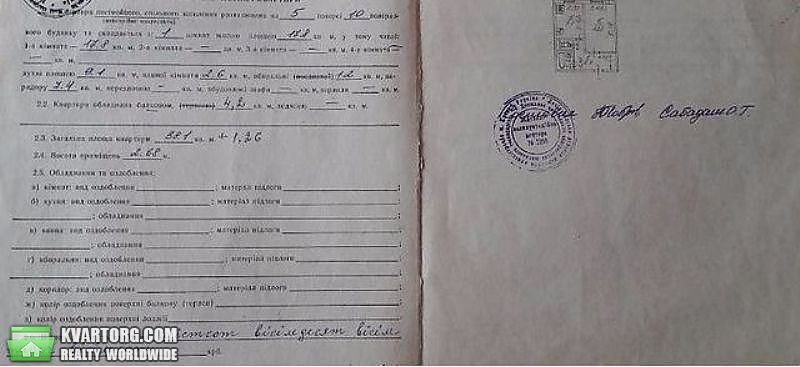 постійного, спільного заселення розташована на 5 поверсі 10 поверхо-
вого будинку та складається з 1 кімнат жилою площею 17.8 кв. м, у тому числі
1-а кімната — 17.8 кв. м, 2-а кімната — кв. м, 3-а кімната — кв. м, 4-а кімната —
— кв. м.
кухні площею 9.1 кв. м, ванної кімнати 2.6 кв. м, вбиральні 1.2 кв. м, ко-
ридору 7.4 кв. м, — кв. м, вбудованої шафи — кв. м, — кв. м.
2.2. Квартира обладнана балконом, (терасою) 4,2 кв. м, лоджією — кв. м.
2.3. Загальна площа квартири 38.1 кв. м + 1,26
2.4. Висота приміщень 2.68 м.
2.5. Обладнання та оздоблення:
а) кімнат: вид оздоблення ; матеріал підлоги ;
б) кухня: вид оздоблення ; матеріал підлоги
; обладнання ;
в) ванна: вид оздоблення ; матеріал підлоги
; обладнання ;
г) вбиральня: вид оздоблення ; матеріал підлоги
; обладнання ;
д) коридор: вид оздоблення ; матеріал підлоги ;
ж) колір оздоблення поверхні балкону (тераси) ;
з) колір оздоблення поверхні лоджії
вісімдесят вісім
крб.
Сабадаш О.Г.
KVARTORG.COM
REALTY-WORLDWIDE